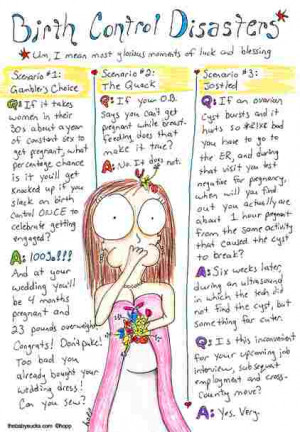 Birth Control Disasters*
*Um, I mean most glorious moments of luck and blessing
Scenario #1:
Gambler's Choice
Q: If it takes
women in their
30s about a year
of constant sex to
get pregnant, what
percentage chance
is it you'll get
knocked up if you
slack on birth
control ONCE to
celebrate getting
engaged?
A: 100%!!!
And at your
wedding you'll
be 4 months
pregnant and
23 pounds overweight.
Congrats! Don't puke!
Too bad you
already bought your
wedding dress!
Can you sew?
Scenario #2:
The Quack
Q: If your O.B.
says you can't get
pregnant while breast-
feeding does that
make it true?
A: No. It does not.
Scenario #3:
Jostled
Q: If an ovarian
cyst bursts and it
hurts so #*!*# bad
you have to go to
the ER, and during
that visit you test
negative for pregnancy,
when will you find
out you actually are
about 1 hour pregnant
from the same activity
that caused the cyst
to break?
A: Six weeks later,
during an ultrasound
in which the tech did
not find the cyst, but
something far cuter.
Q: Is this inconvenient
for your upcoming job
interview, subsequent
employment and cross-
country move?
A: Yes. Very.
thebabysucks.com @hopp